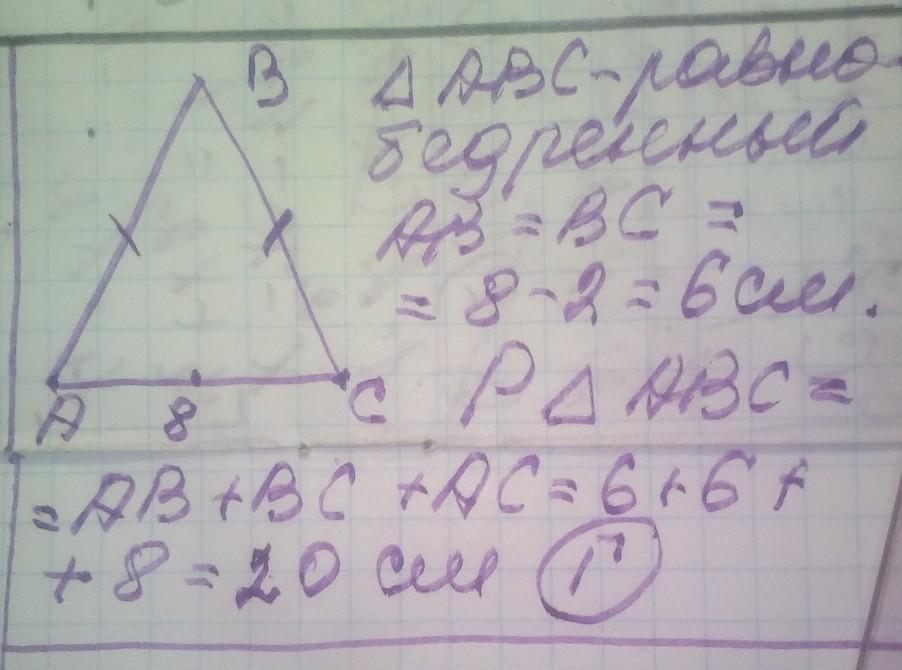 B
△ ABC - равно-
бедренный
AB = BC =
= 8 - 2 = 6 см.
A 8 C
P △ ABC =
= AB + BC + AC = 6 + 6 +
+ 8 = 20 см Г